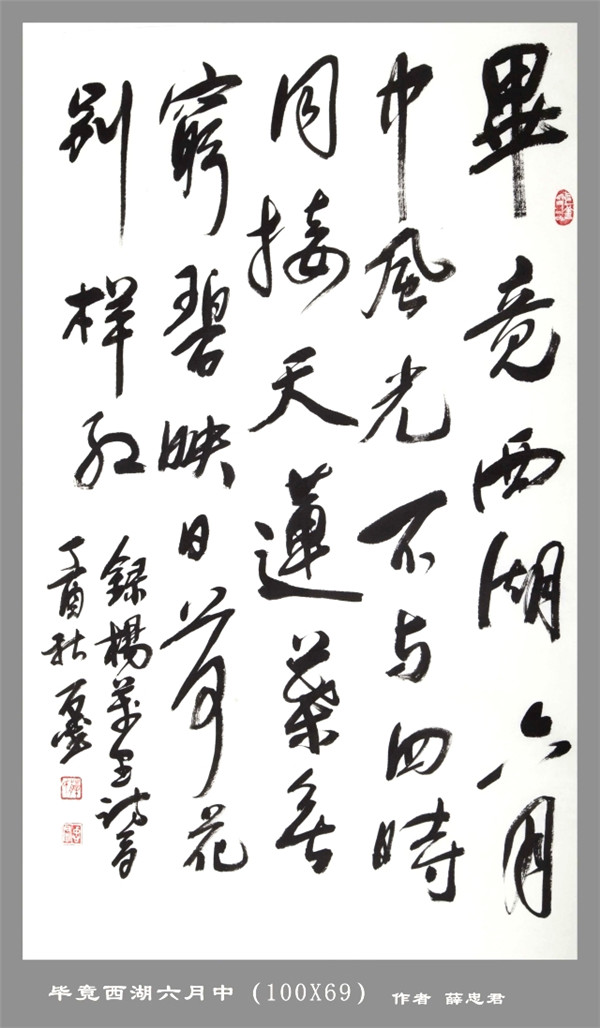 畢竟西湖六月
中風光不与四時
同接天蓮葉無
窮碧映日荷花
别樣红
録楊萬里詩一首
丁酉秋
毕竟西湖六月中（100X69） 作者 薛忠君